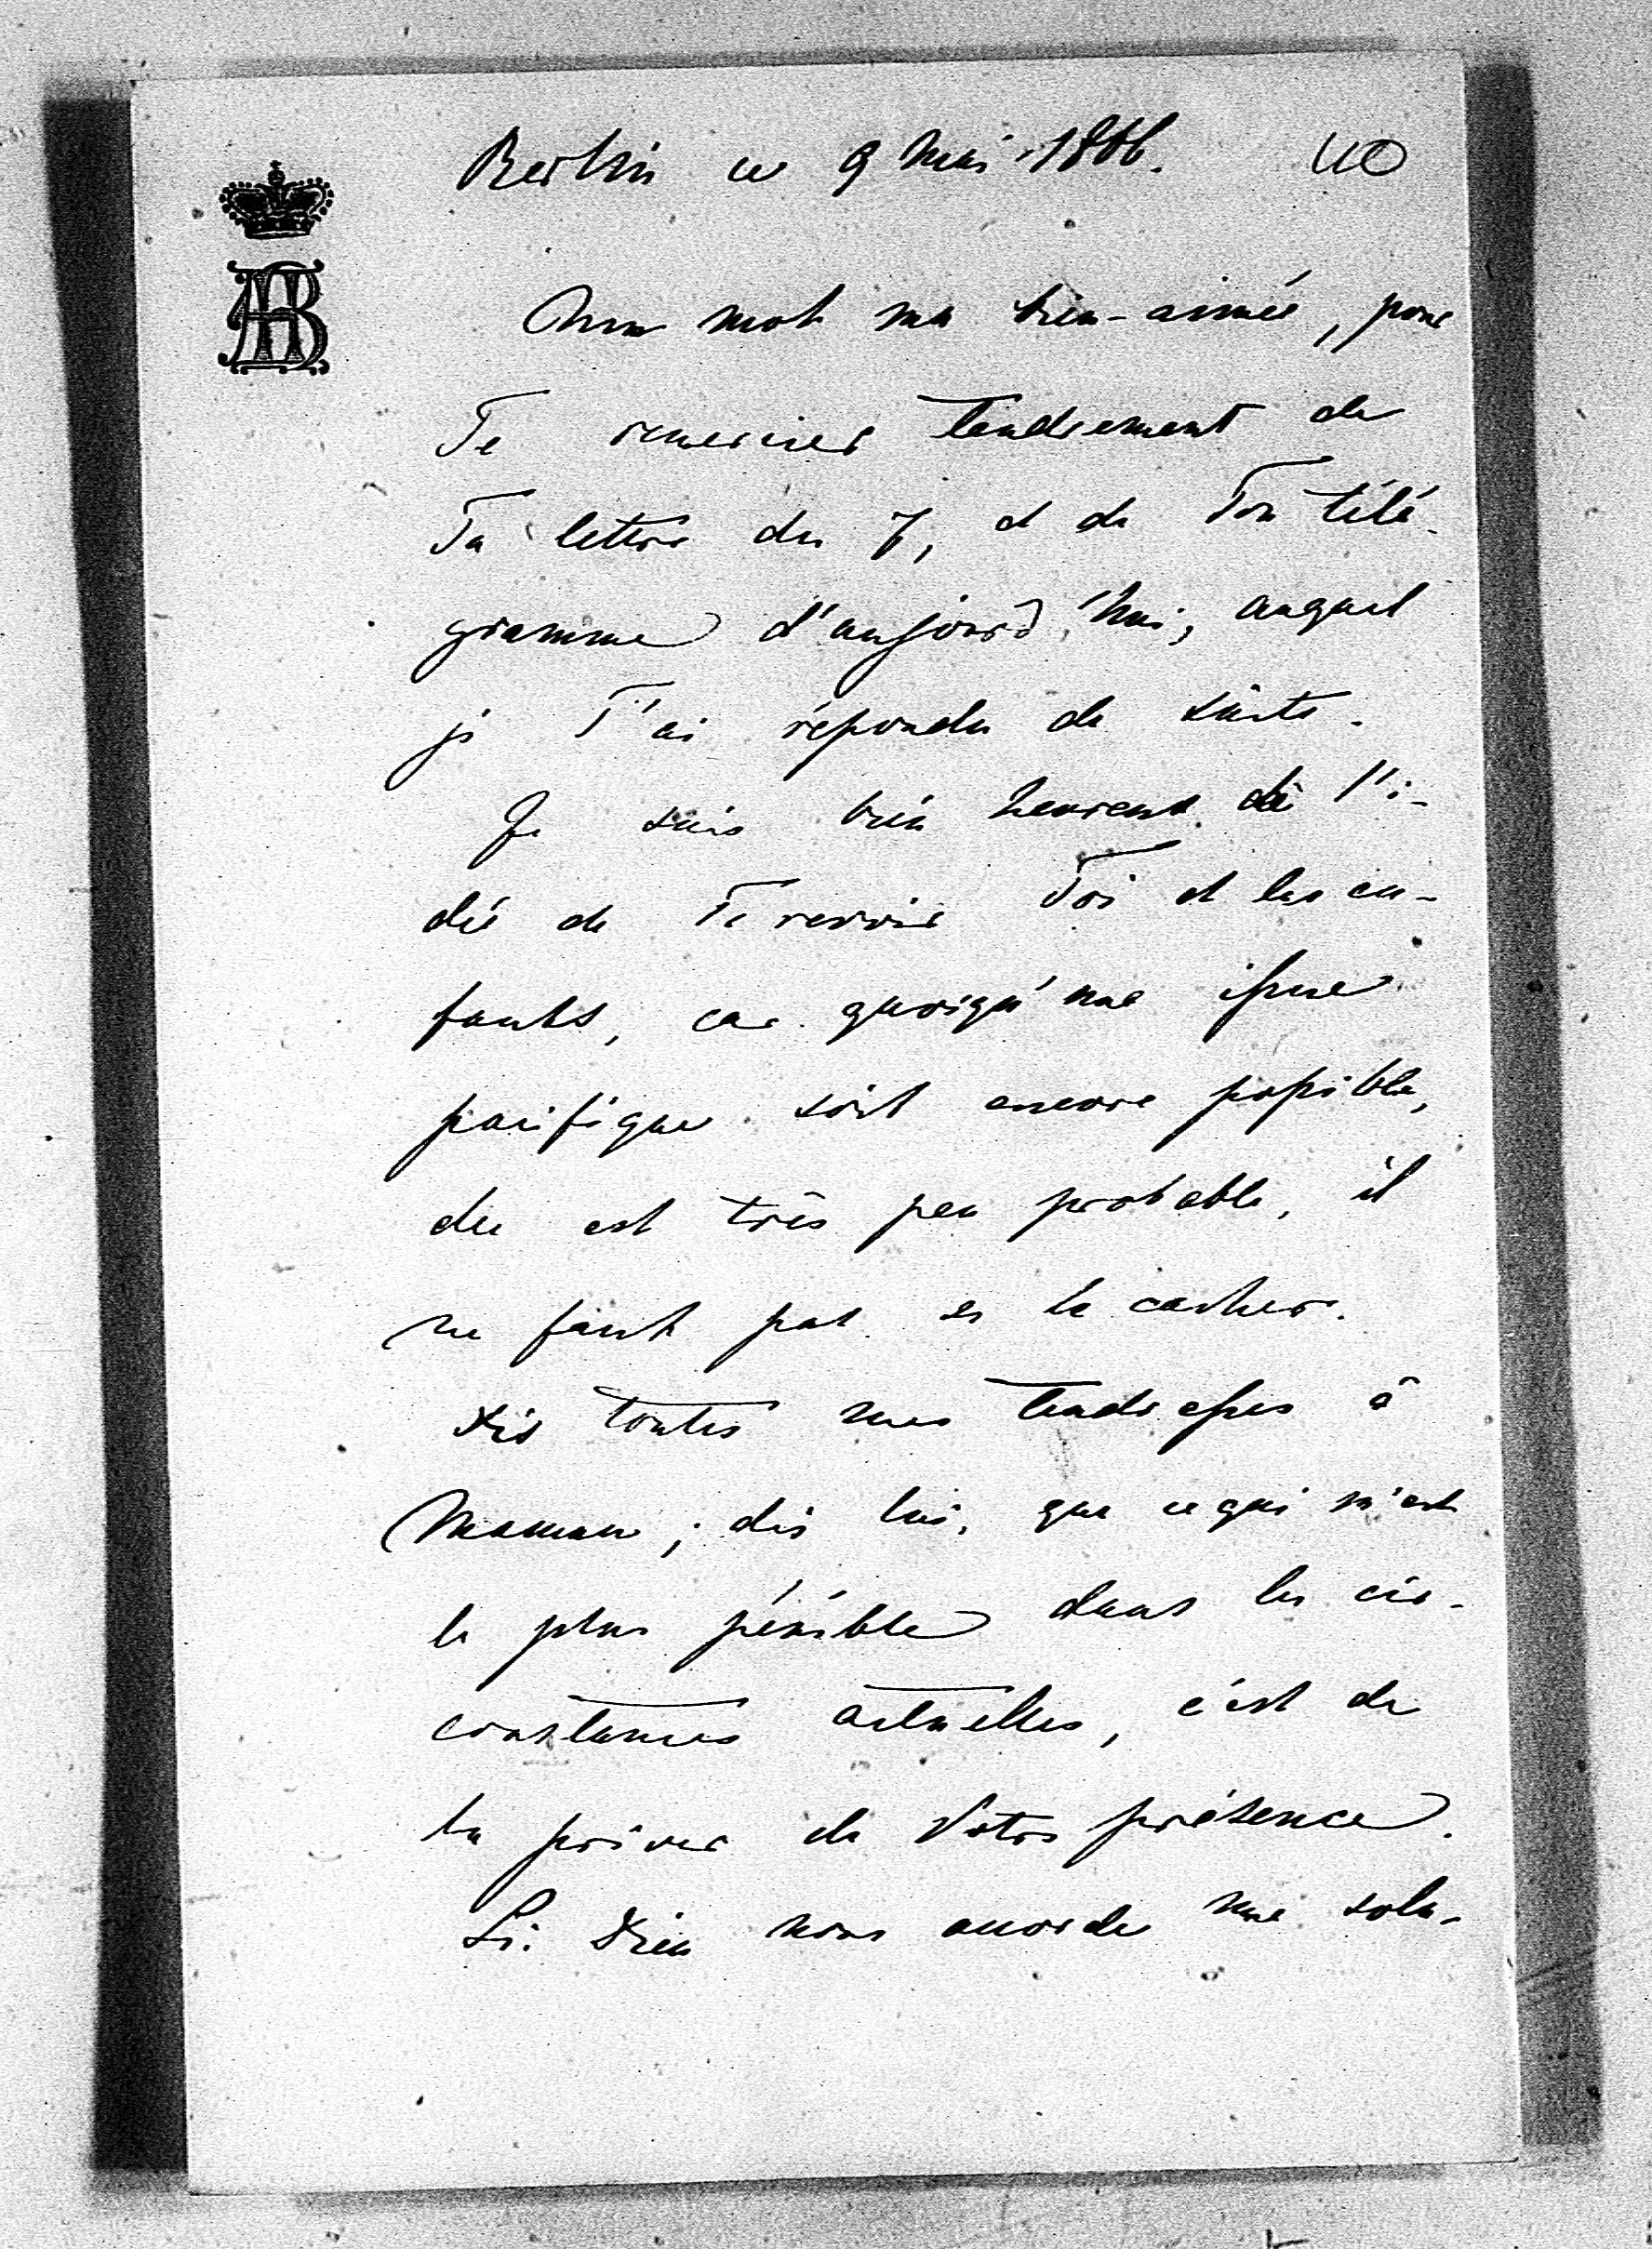 Berlin ce 9 Mai 1866.
40
AB
Un mot ma bien-aimée, pour
Te remercier tendrement de
Ta lettre du 7, et de Ton télé-
gramme d'aujourd'hui, auquel
je T'ai répondu de suite.
Je suis bien heureux de l'i-
dée de Te revoir Toi et les en-
fants, car quoiqu'une issue
pacifique soit encore possible,
elle est très peu probable, il
ne faut pas se le cacher.
Dis toutes mes tendresses à
Maman ; dis lui, que ce qui m'est
le plus pénible dans les cir-
constances actuelles, c'est de
la priver de Votre présence.
Si Dieu nous accorde une solu-